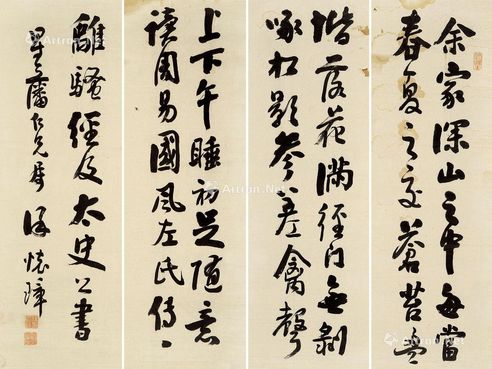 余家深山之中每當
春夏之交蒼苔盈
堦落花滿徑門無剝
啄松影參差禽聲
上下午睡初足隨意
讀周易國風左氏傳
離騷經及太史公書
星藩仁兄屬 懷璋
Artron.Net
Artron.Net
Artron.Net
Artron.Net